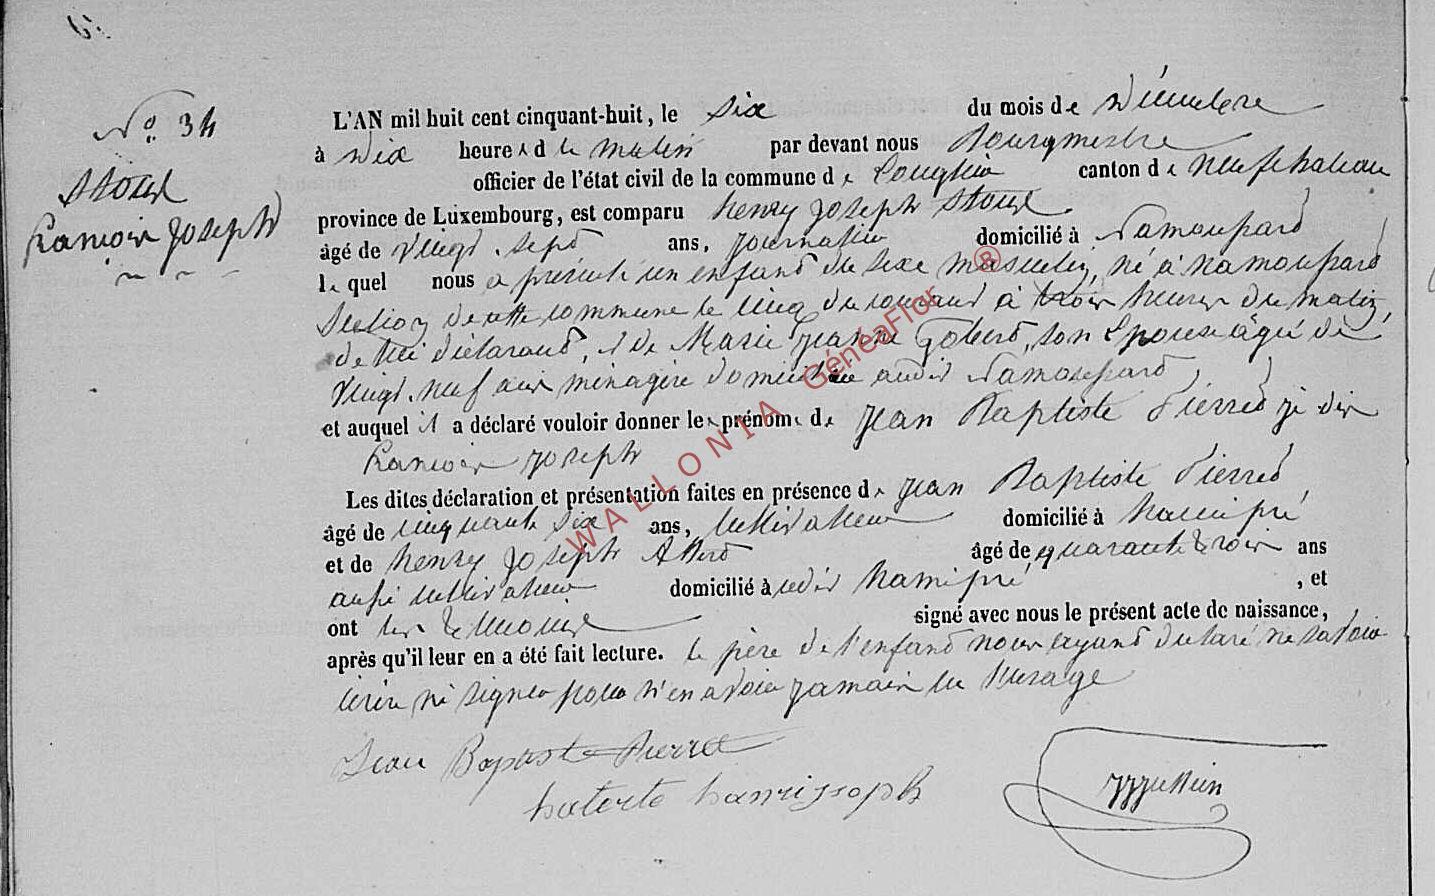 N° 34
Stoux
François Joseph
L'AN mil huit cent cinquant-huit, le six du mois de Décembre
à dix heures du matin par devant nous Bourgmestre
officier de l'état civil de la commune de Longlier canton de Neufchateau
province de Luxembourg, est comparu henry joseph Stoux
âgé de vingt sept ans, journalier domicilié à Namoupard
le quel nous a présenté un enfant du sexe masculin, né à Namoupard
section de cette commune le cinq du courant à trois heures du matin,
de lui déclarant, et de Marie jeanne Gobert, son Epouse âgée de
vingt neuf ans ménagère domiciliée audit Namoupard
et auquel il a déclaré vouloir donner les prénoms de jean Baptiste Pierret je dis
François joseph
Les dites déclaration et présentation faites en présence de jean Baptiste Pierret,
âgé de cinquante six ans, cultivateur domicilié à hamipré,
et de henry joseph âgé de quarante trois ans
aussi cultivateur domicilié à udit hamipré, , et
ont les témoins signé avec nous le présent acte de naissance,
après qu'il leur en a été fait lecture. le père de l'enfant nous ayant déclaré ne savoir
écrire ni signer pour n'en avoir jamais eu l'usage
Jean Bapist Pierret
haterte hanrijosoph
WALLONIA GénéaFlor ®